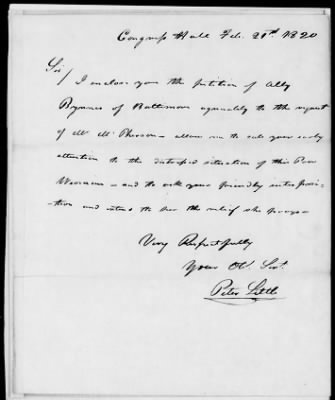 Congress Hall Feb. 21th 1820
Sir/
I enclose you the petition of Ally
Bynnes of Baltimore agreeably to the request
of Mr. McPherson - allow me to ask your early
attention to the distressed situation of this Poor
Woman - and to ask your friendly interposi-
tion and extend to her the relief she prays -
Very Respectfully
Your Ob. Servt.
Peter Little